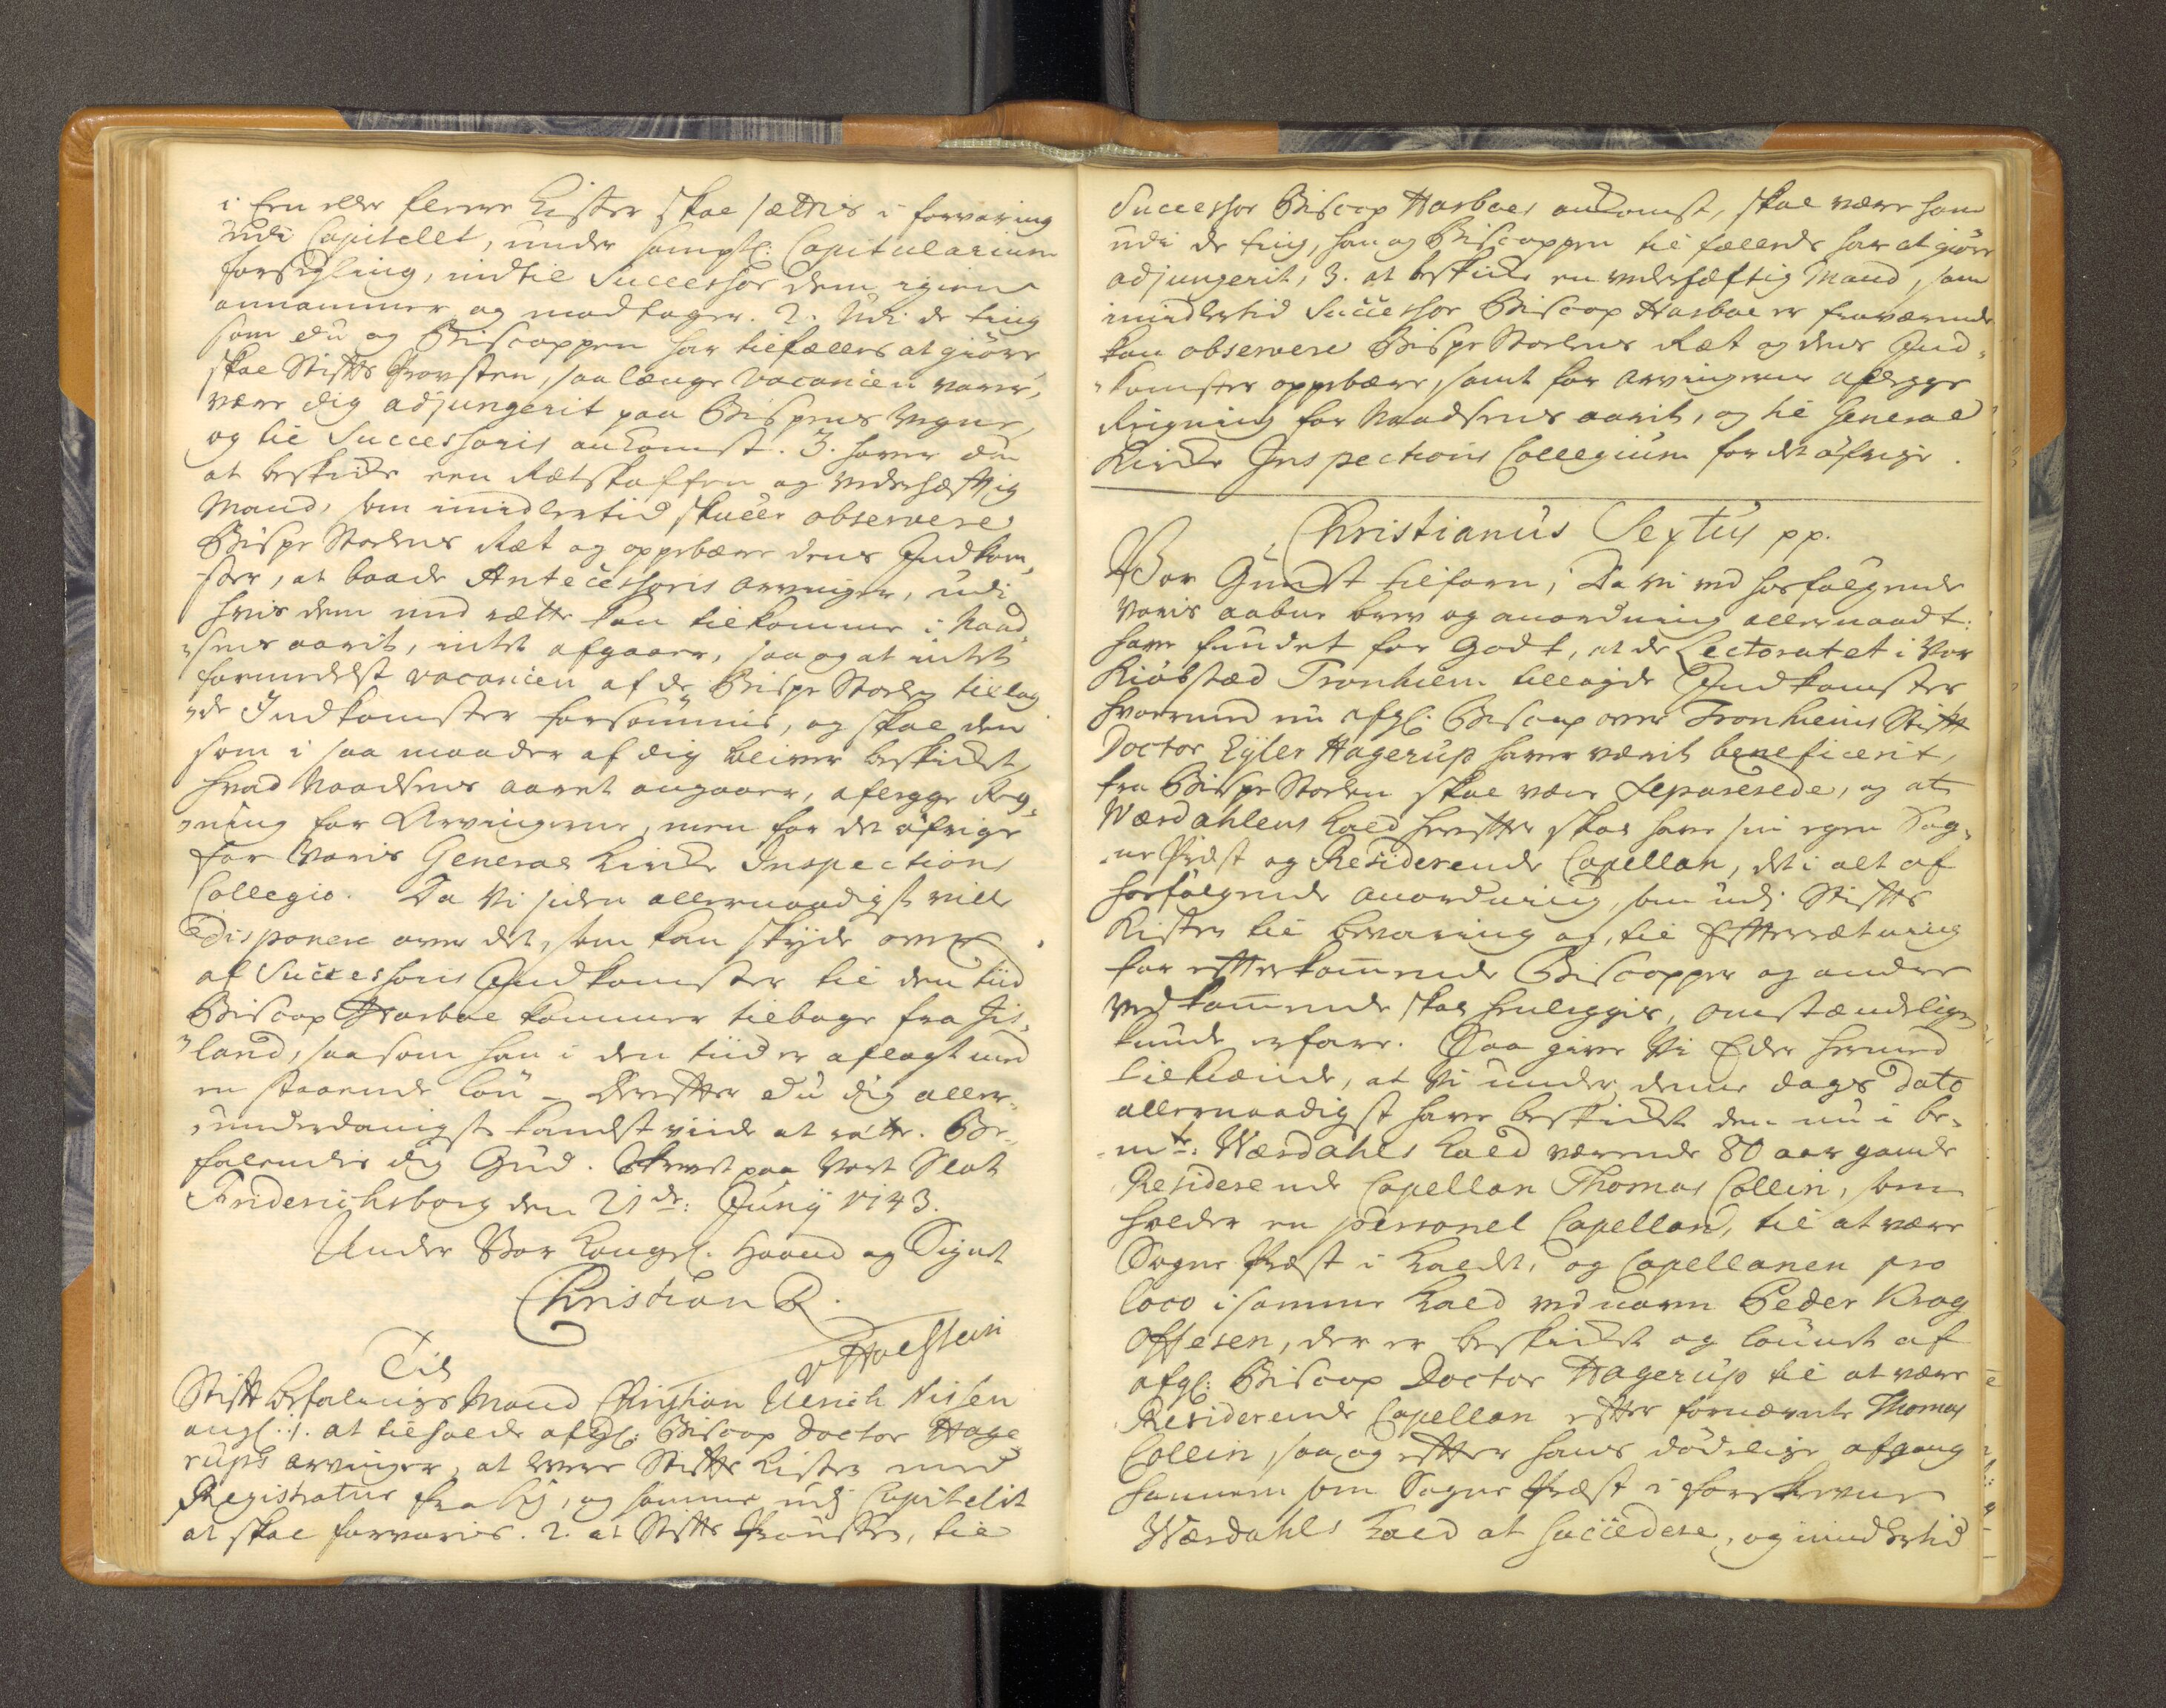 i Een eller fleere Kister skal sættes i forvaring
udi Capitellet, under sampl: Capitularium
forsegling, indtil Successor dem igien
annammer og modtager. 2. Udi de ting
som du og Biscoppen har tilfælles at giøre,
skal Stifts Provsten, saa længe vacancien varer,
være dig adjungerit paa Bispens vegne,
og til Successoris ankomst. 3. haver du
at beskicke een Retskaffen og vederhæftig
Mand, som imidlertid skulle observere
Bispe Stolens Ret og oppebære dens Indkom-
ster, at baade Antecessoris arvinger, udi
hvis dem med rette kan tilkomme i Naad-
sens aarit, intet afgaaer, saa og at intet
formedelst vacancien af de Bispe Stolen tillag
de Indkomster forsømmis, og skal den
som i saa maader af dig bliver beskicket,
hvad Naadsens aaret angaaer, aflegge Reg-
ning for Arvingerne, men for det øfrige
for Voris General Kirke Inspections
Collegio. Da Vi siden allernaadigst ville
disponere over det, som kan skyde over
af Successoris Indkomster til den tiid
Biscop Harboe kommer tilbage fra Jis-
land, saasom han i den tiid er aflagt med
en staaende løn – Derefter du dig aller-
underdanigst kandst vide at rætte. Be-
falendes dig Gud. Skrevet paa Vort Slot
Friderichsborg den 21de: Junij 1743.
Under Vor Kongel. Haand og Signet
Christian R.
v Holstein
Til
Stift befalings Mand Christian Ulrich Nissen
angl: 1. at tilholde afgl: Biscop Doctor Hage
rups arvinger, at levere Stifts Kisten med
Registratur fra sig, og samme udj Capitelit
at skal forvaris. 2. at Stifts Provsten, til
Successor Biscop Harboes ankomst, skal være ham
udi de ting, han og Biscoppen til fælleds har at giøre
adjungerit, 3. at beskicke en vederhæftig Mand, som
imidlertid Successor Biscop Harboe er fraværende
kan observere Bispe Stolens Ret og dens Ind-
komster oppebære, samt for arvingerne aflegge
Reigning for Naadsens aarit, og til General
Kirke Inspections Collegium for det øfrige.
Christianus Sextus pp.
Vor Gunst tilforn; Da Vi ved hosfølgende
Voris aabne brev og anordning allernaadt:
have fundet for Godt, at de Lectoratet i Vor
Kiøbstæd Tronhiem tillagde Indkomster
hvormed nu afgl: Biscop over Tronhiems Stift
Doctor Eyler Hagerup haver værit beneficerit,
fra Bispe Stolen skal være separerede, og at
Værdahlens Kald herefter skal have sin egen Sog-
ne Præst og Residerende Capellan, det i alt af
hosfølgende anordning, som udj Stifts
Kisten til bevaring og, til Efterretning
for efterkommende Biscopper og andre
vedkommende skal henleggis, omstændelige
kunde erfare. Saa give Vi Eder hermed
tilkiænde, at Vi under denne dags dato
allernaadigst have beskicket den nu i be-
mte: Værdahls Kald værende 80 aar gamle
Residerende Capellan Thomas Collin, som
holder en personel Capellan, til at være
Sogne Præst i Kaldet, og Capellanen pro
loco i samme Kald ved navn Peder Krog
Offesen, der er beskicket og lønnet af
afgl: Biscop Doctor Hagerup til at være
Residerende Capellan efter fornævnte Thomas
Collin, saa og efter hans dødelige afgang
hannem som Sogne Præst i forskrevne
Værdahls Kald at succedere, og imidlertid